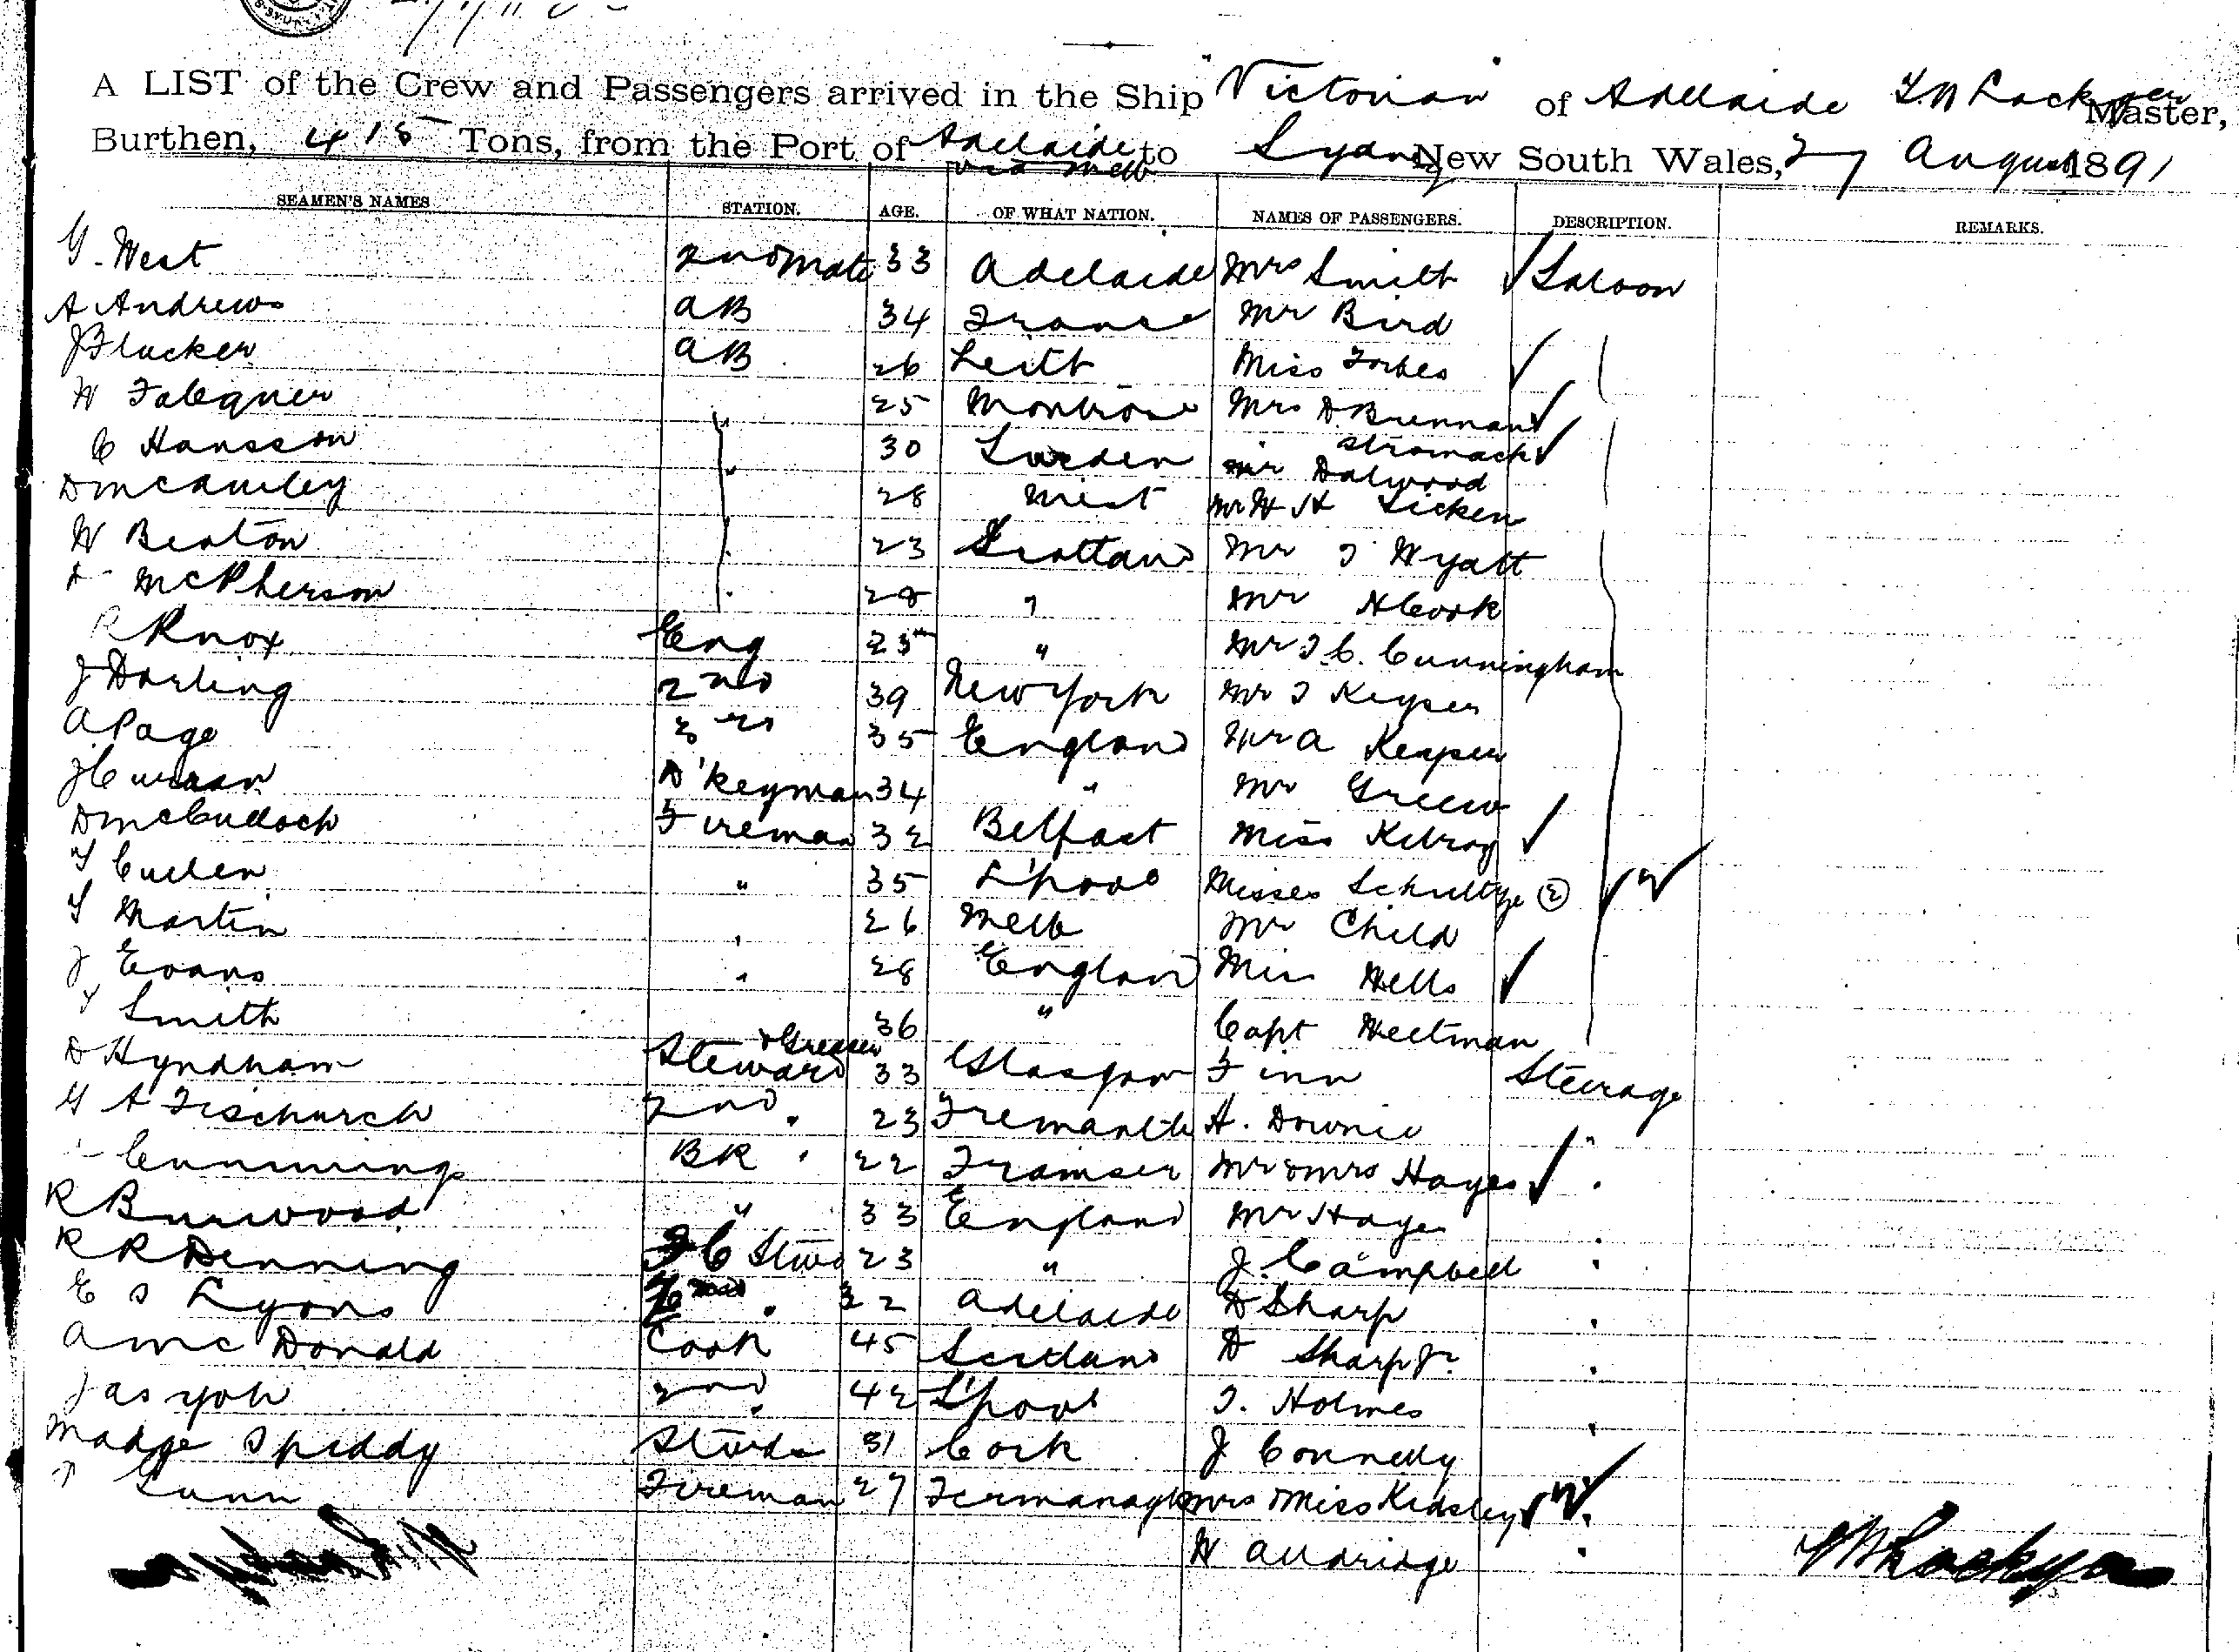 A LIST of the Crew and Passengers arrived in the Ship "Victorian" of Adelaide Master,
Burthen, 415 Tons, from the Port of Adelaide to Sydney New South Wales, 27 August 1891
via Melb
SEAMEN'S NAMES STATION. AGE. OF WHAT NATION. NAMES OF PASSENGERS. DESCRIPTION. REMARKS.
G. West 2nd Mate 33 Adelaide Mrs Smith Saloon
A Andrews AB 34 France Mr Bird
AB 26 Leith Miss Forbes
W Falegner 25 Montrose Mrs D. Brennan
C Hansson 30 Sweden Stromach
Mr Dalwood
D McCauley 28 Mr W H Sicken
W Beaton 23 Scotland Mr T Wyatt
McPherson 28 " Mr H Cook
R Knox Eng 25 " Mr T. C. Cunningham
J Darling 2nd 39 New York Mr T Keyser
A Page 3rd 35 England Mr A Keyser
J Curran D'keyman 34 " Mr Green
D McCulloch Fireman 32 Belfast Miss Kilroy
T Cullen " 35 L'pool Misses Schultze (2)
T Martin " 26 Melb Mr Child
J Evans " 28 England Miss Wells
Smith 36 " Capt Weetman
& Greaser
D Hyndham Steward 33 Glasgow Finn Steerage
G A 2nd " 23 Fremantle A. Downie "
Cummings BR " 22 Mr & Mrs Hayes "
R Burwood " 33 England Mr Hayes "
R R Denning FC Stwd 23 " J. Campbell "
E S Lyons " 32 Adelaide D Sharp "
A McDonald Cook 45 Scotland D Sharp Jr "
Jas 2nd " 42 L'pool T. Holmes "
Madge Speddy Stwds 31 Cork J Connelly
T Gunn Fireman 27 Fermanagh Mrs & Miss Kidsley "
W Alldridge "